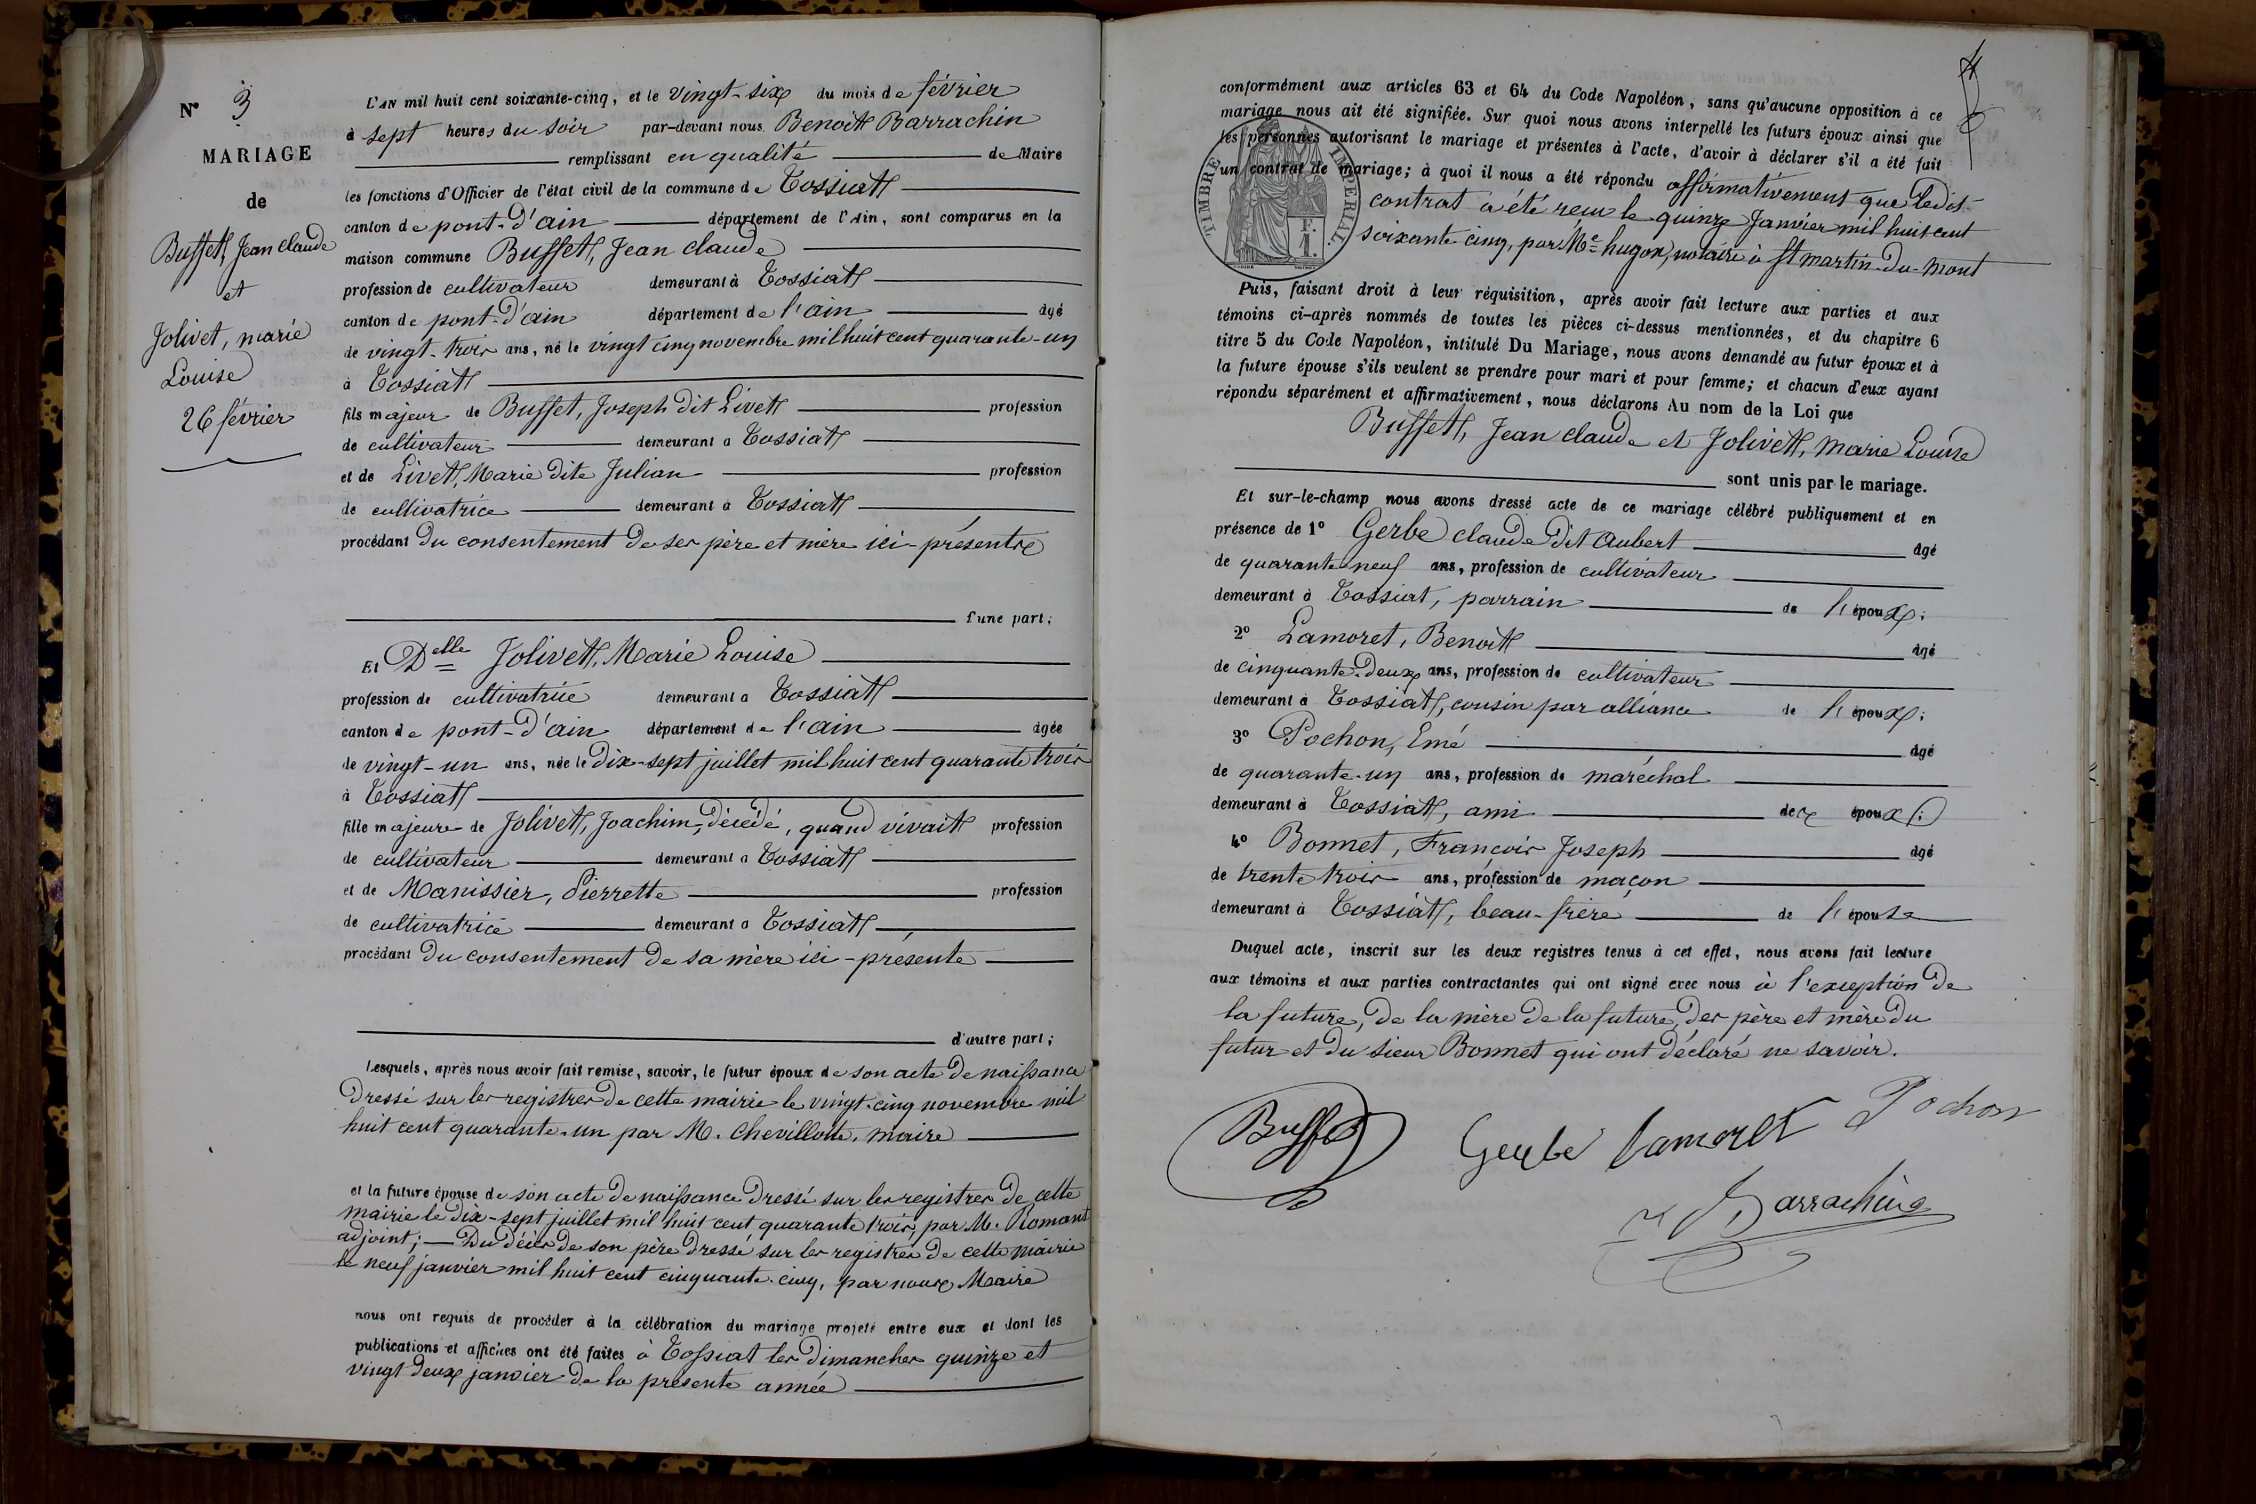 N° 3
MARIAGE
de
Buffet, Jean claude
et
Jolivet, marie
Louise
26 février
L'AN mil huit cent soixante-cinq, et le vingt-six du mois de février
à sept heures du soir par-devant nous Benoît Barrachin
remplissant en qualité de Maire
les fonctions d'Officier de l'état civil de la commune de Tossiat
canton de pont-d'ain département de l'Ain, sont comparus en la
maison commune Buffet, Jean claude
profession de cultivateur demeurant à Tossiat
canton de pont-d'ain département de l'ain âgé
de vingt-trois ans, né le vingt cinq novembre mil huit cent quarante-un
à Tossiat
fils majeur de Buffet, Joseph dit Livet profession
de cultivateur demeurant à Tossiat
et de Livet, Marie dite Julian profession
de cultivatrice demeurant à Tossiat
procédant du consentement de ses père et mère ici-présents
d'une part;
Et Delle Jolivet, Marie Louise
profession de cultivatrice demeurant à Tossiat
canton de pont-d'ain département de l'ain âgée
de vingt-un ans, née le Dix-sept juillet mil huit cent quarante trois
à Tossiat
fille majeure de Jolivet, Joachim, décédé, quand vivait profession
de cultivateur demeurant à Tossiat
et de Manissier, Pierrette profession
de cultivatrice demeurant à Tossiat
procédant du consentement de sa mère ici-présente
d'autre part;
Lesquels, après nous avoir fait remise, savoir, le futur époux de son acte de naissance
Dressé sur les registres de cette mairie le vingt-cinq novembre mil
huit cent quarante-un par M. Chevillotte, maire
et la future épouse de son acte de naissance dressé sur les registres de cette
mairie le dix-sept juillet mil huit cent quarante trois, par M. Romant
adjoint; — Du décès de son père dressé sur les registres de cette mairie
le neuf janvier mil huit cent cinquante-cinq, par nous Maire
nous ont requis de procéder à la célébration du mariage projeté entre eux et dont les
publications et affiches ont été faites à Tossiat les dimanches quinze et
vingt deux janvier de la présente année
conformément aux articles 63 et 64 du Code Napoléon, sans qu'aucune opposition à ce
mariage nous ait été signifiée. Sur quoi nous avons interpellé les futurs époux ainsi que
les personnes autorisant le mariage et présentes à l'acte, d'avoir à déclarer s'il a été fait
un contrat de mariage; à quoi il nous a été répondu affirmativement que ledit
contrat a été reçu le quinze Janvier mil huit cent
soixante cinq, par Me hugon, notaire à St martin-du-Mont
TIMBRE IMPERIAL.
1 F.
Puis, faisant droit à leur réquisition, après avoir fait lecture aux parties et aux
témoins ci-après nommés de toutes les pièces ci-dessus mentionnées, et du chapitre 6
titre 5 du Code Napoléon, intitulé Du Mariage, nous avons demandé au futur époux et à
la future épouse s'ils veulent se prendre pour mari et pour femme; et chacun d'eux ayant
répondu séparément et affirmativement, nous déclarons Au nom de la Loi que
Buffet, Jean claude et Jolivet, Marie Louise
sont unis par le mariage.
Et sur-le-champ nous avons dressé acte de ce mariage célébré publiquement et en
présence de 1° Gerbe claude dit Aubert âgé
de quarante neuf ans, profession de cultivateur
demeurant à Tossiat, parrain de l'époux;
2° Lamoret, Benoît âgé
de cinquante-Deux ans, profession de cultivateur
demeurant à Tossiat, cousin par alliance de l'époux;
3° Pochon, Emé âgé
de quarante-un ans, profession de maréchal
demeurant à Tossiat, ami des époux;
4° Bonnet, François Joseph âgé
de trente trois ans, profession de maçon
demeurant à Tossiat, beau-frère de l'épouse
Duquel acte, inscrit sur les deux registres tenus à cet effet, nous avons fait lecture
aux témoins et aux parties contractantes qui ont signé avec nous à l'exception de
la future, de la mère de la future, des père et mère du
futur et du sieur Bonnet qui ont déclaré ne savoir.
Buffet Gerbe Lamoret Pochon
Barrachin